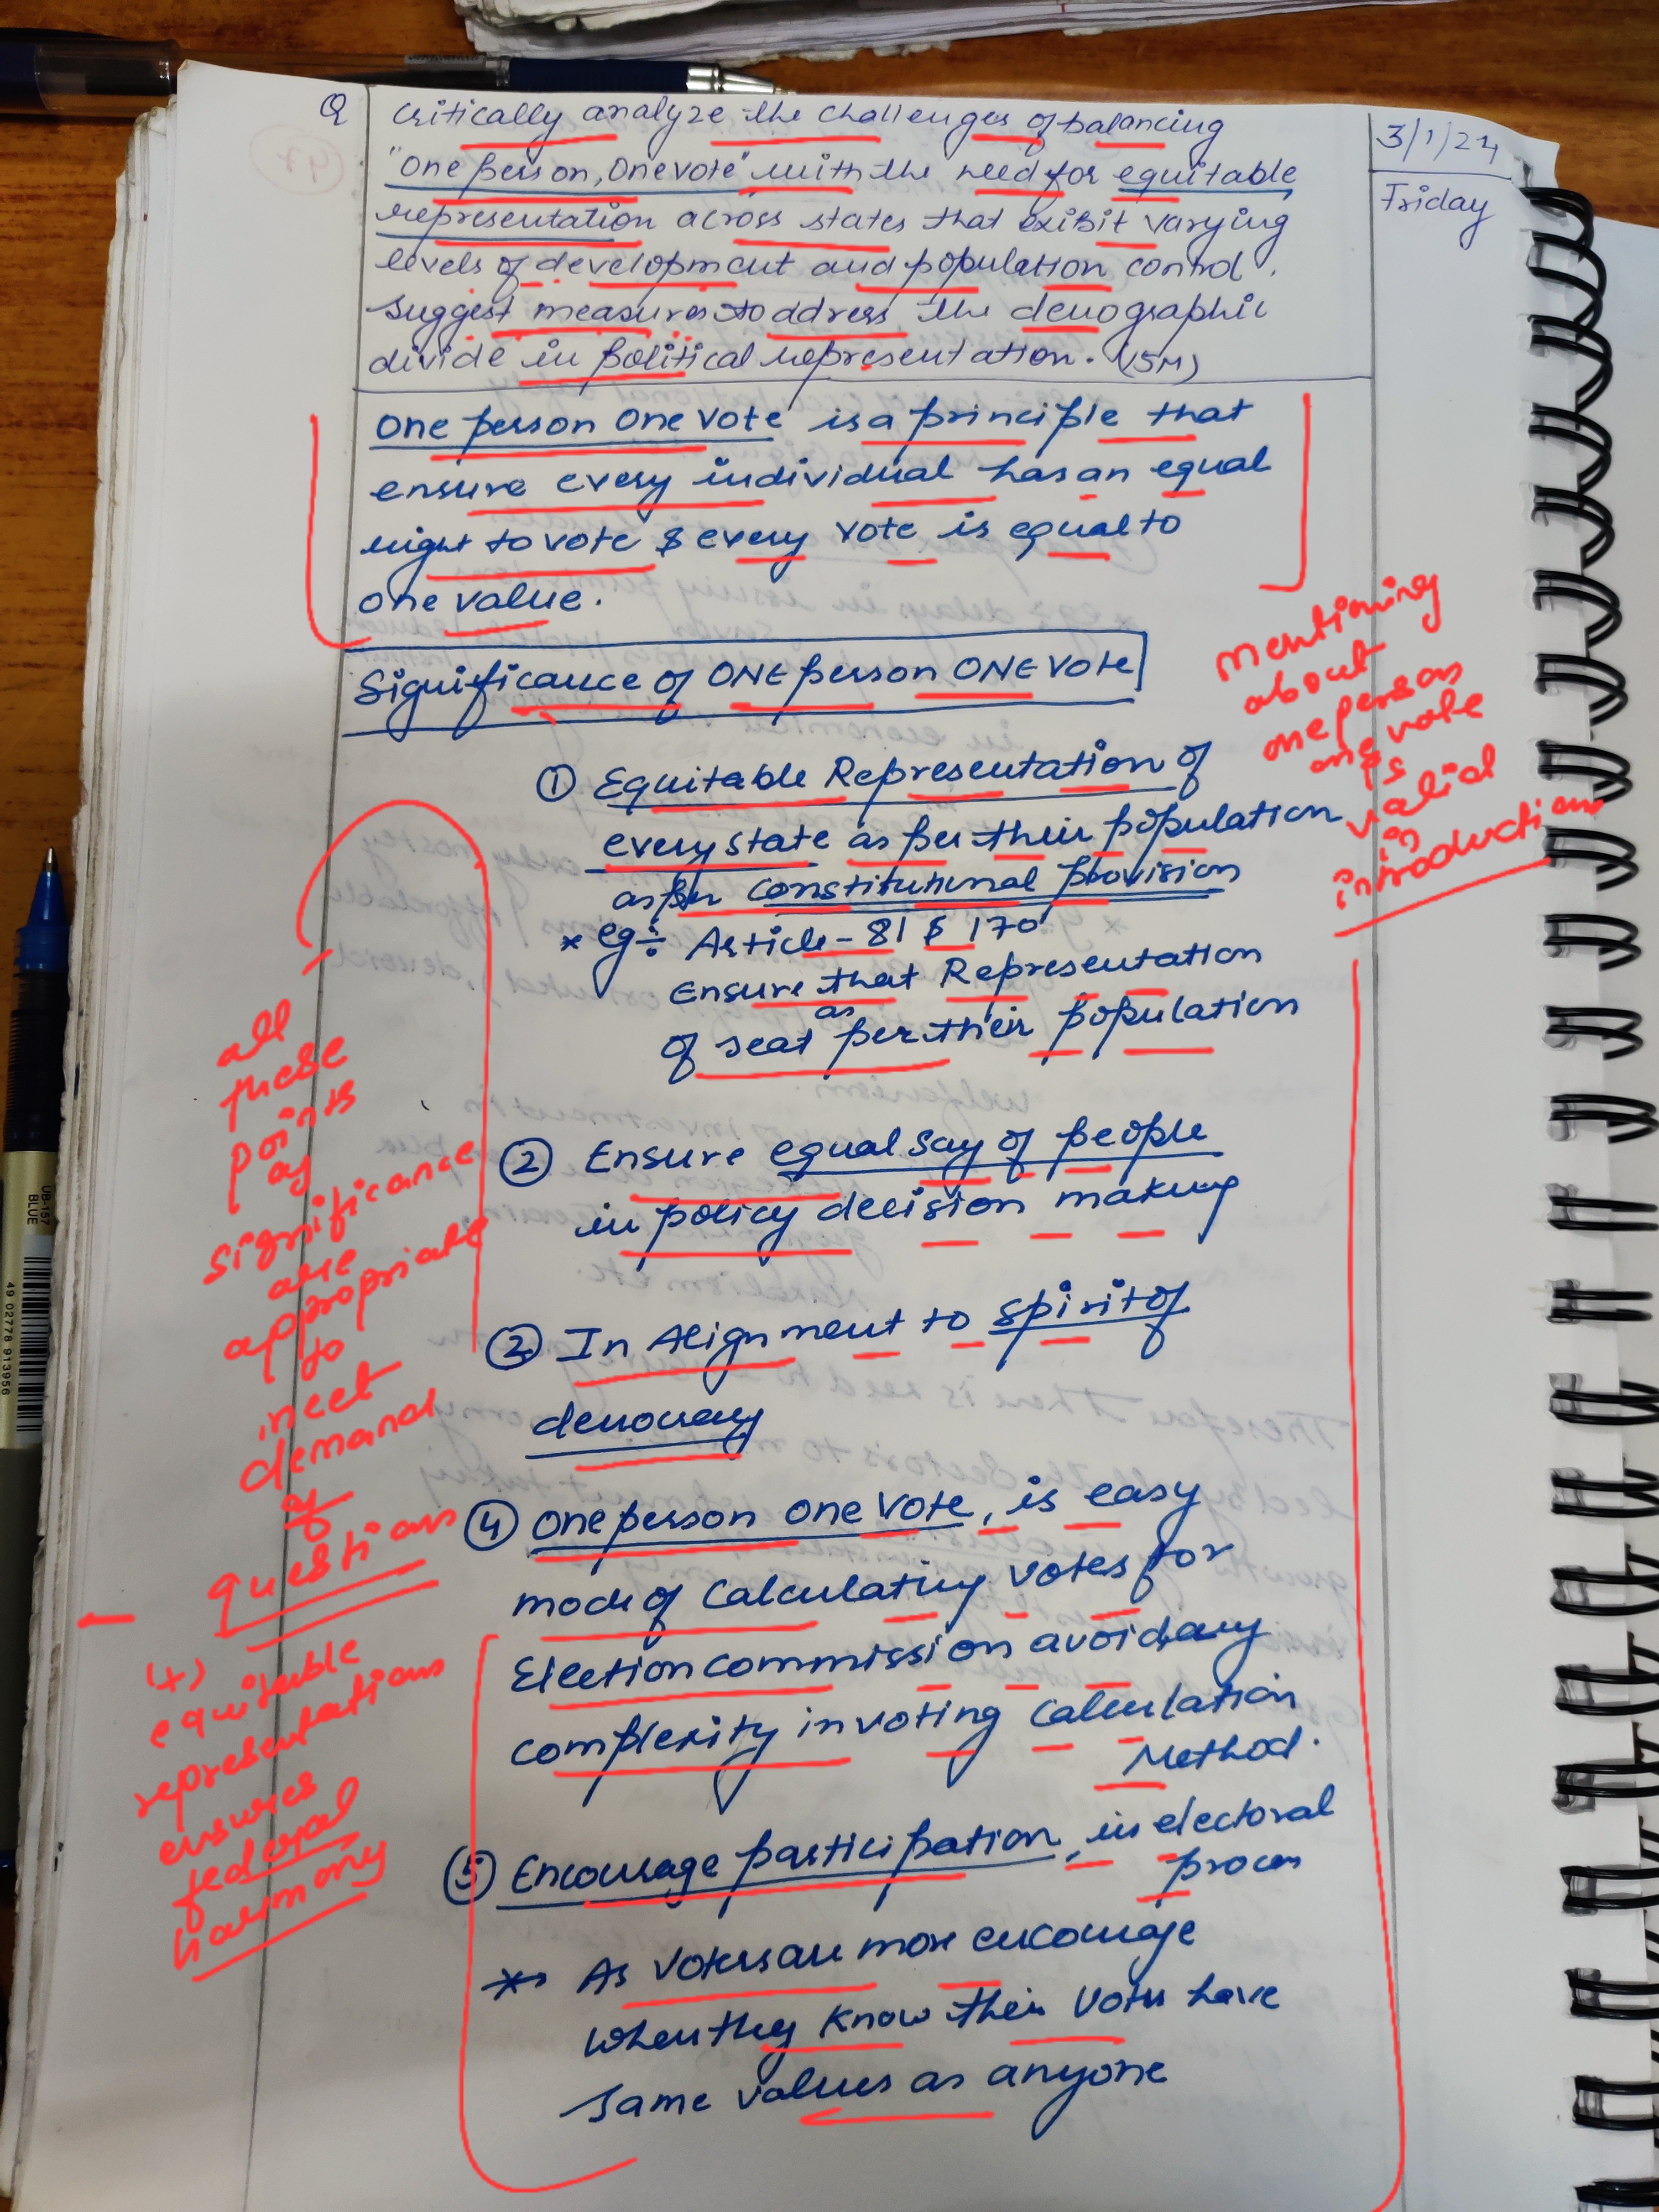 Q
critically analyze the challenges of balancing
"One person, One vote" with the need for equitable
representation across states that exibit varying
levels of development and population control.
Suggest measures to address the demographic
divide in political representation. (15M)
3/1/24
Friday
One person One vote is a principle that
ensure every individual has an equal
right to vote $ every vote is equal to
one value.
Significance of ONE person ONE VOTE
① Equitable Representation of
every state as per their population
as per constitutional provision
* eg÷ Article-81 $ 170
Ensure that Representation
as
of seat per their population
② Ensure equal say of people
in policy decision making
③ In Alignment to spirit of
democracy
④ One person one Vote, is easy
mode of Calculating Votes for
Election commission avoid any
complexity in voting Calculation
Method.
⑤ Encourage participation, in electoral
process
* As Voters are more encourage
when they know their Votes have
same values as anyone
mentioning
about
one person
one vote
is
valid
in
introduction
all
these
points
as
significance
are
appropriate
to
meet
demand
of
question
(+)
equitable
representations
ensures
federal
harmony
UB-157
BLUE
49 02778 913956